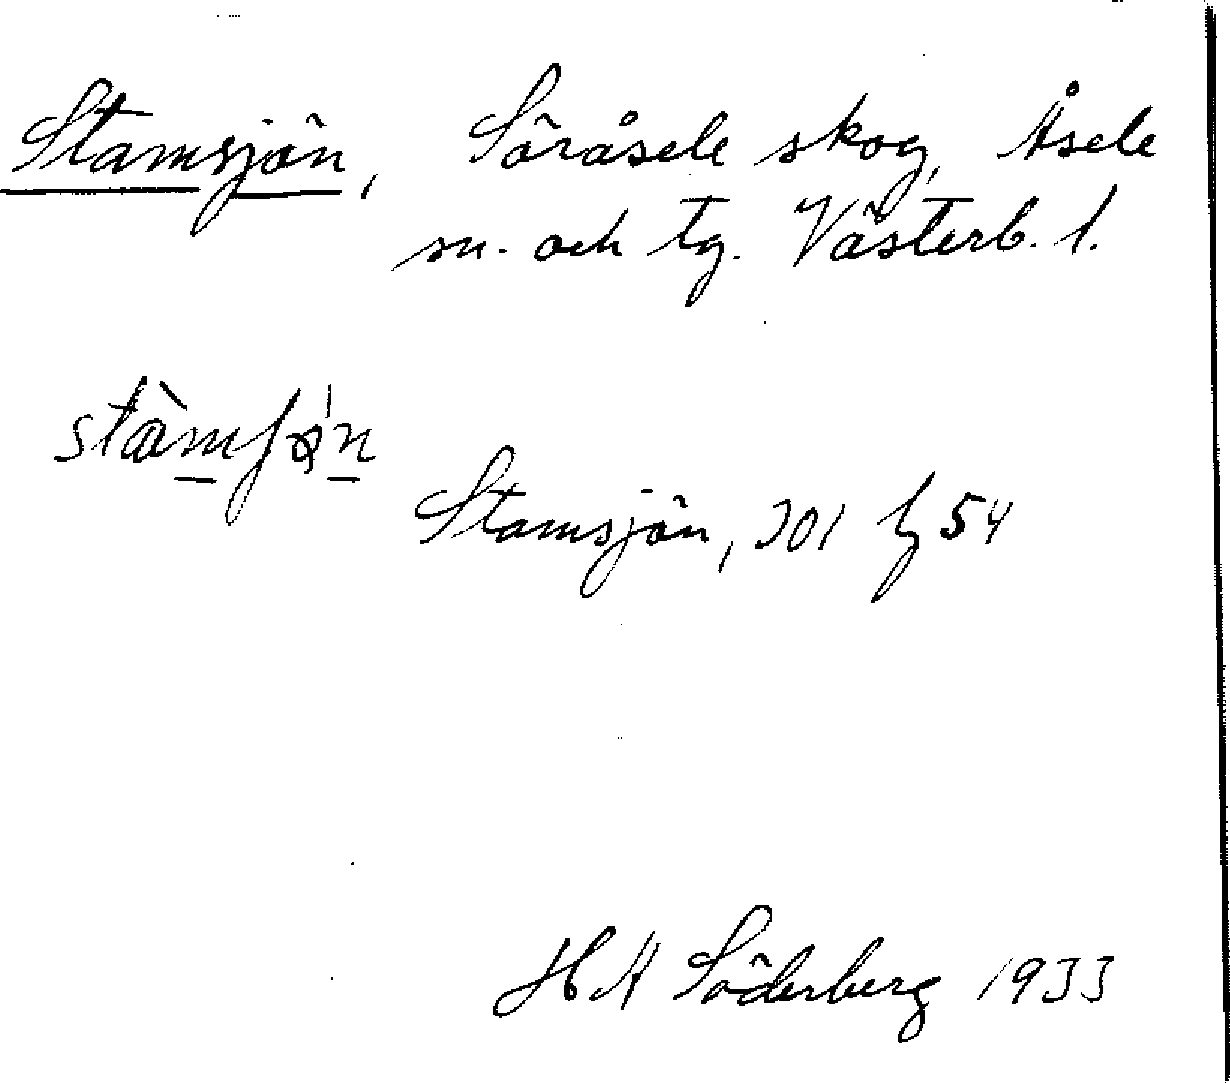 Stamsjön, Söråsele skog, Åsele
sn. och tg. Västerb. l.
Stamsjön, 201 54
H A Söderberg 1933